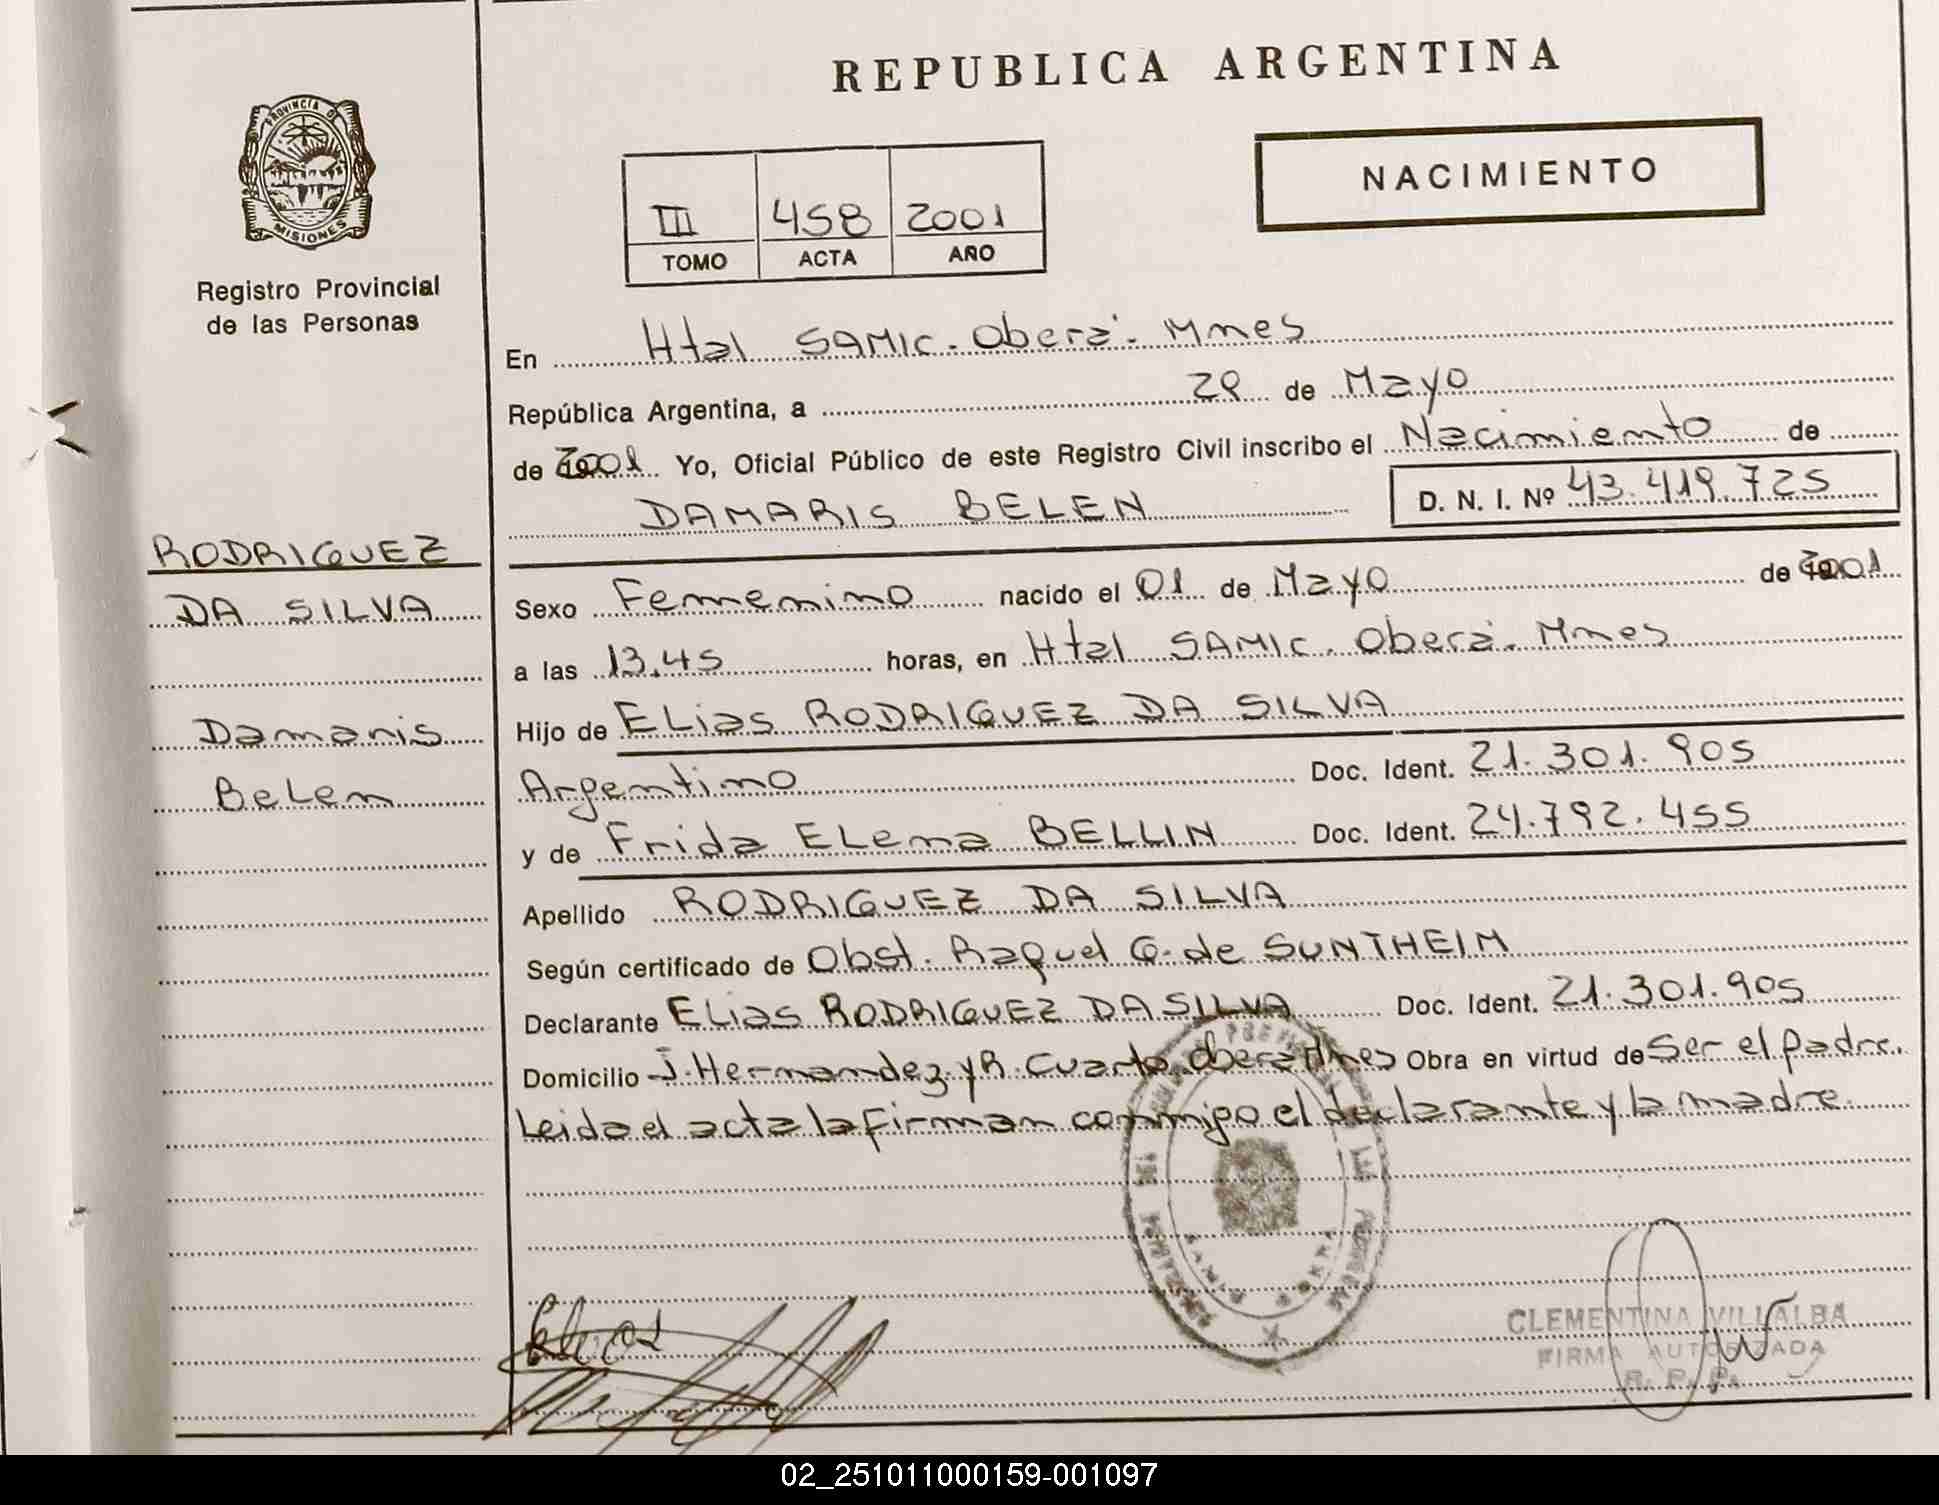 REPUBLICA ARGENTINA
PROVINCIA DE
MISIONES
Registro Provincial
de las Personas
III 458 2001
TOMO ACTA AÑO
NACIMIENTO
En Htal SAMIC. Oberá. Mnes
República Argentina, a 29 de Mayo
de 2001 Yo, Oficial Público de este Registro Civil inscribo el Nacimiento de
DAMARIS BELEN D. N. I. Nº 43.419.725
RODRIGUEZ
DA SILVA
Damaris
Belen
Sexo Femenino nacido el 01 de Mayo de 2001
a las 13.45 horas, en Htal SAMIC. Oberá. Mnes
Hijo de Elias RODRIGUEZ DA SILVA
Argentino Doc. Ident. 21.301.905
y de Frida Elena BELLIN Doc. Ident. 24.792.455
Apellido RODRIGUEZ DA SILVA
Según certificado de Obst. Raquel G. de SUNTHEIM
Declarante Elias RODRIGUEZ DA SILVA Doc. Ident. 21.301.905
Domicilio J. Hernandez y R. Cuarto Oberá Mnes Obra en virtud de Ser el padre.
Leida el acta la firman conmigo el declarante y la madre.
CLEMENTINA VILLALBA
FIRMA AUTORIZADA
R. P. P.
02_251011000159-001097